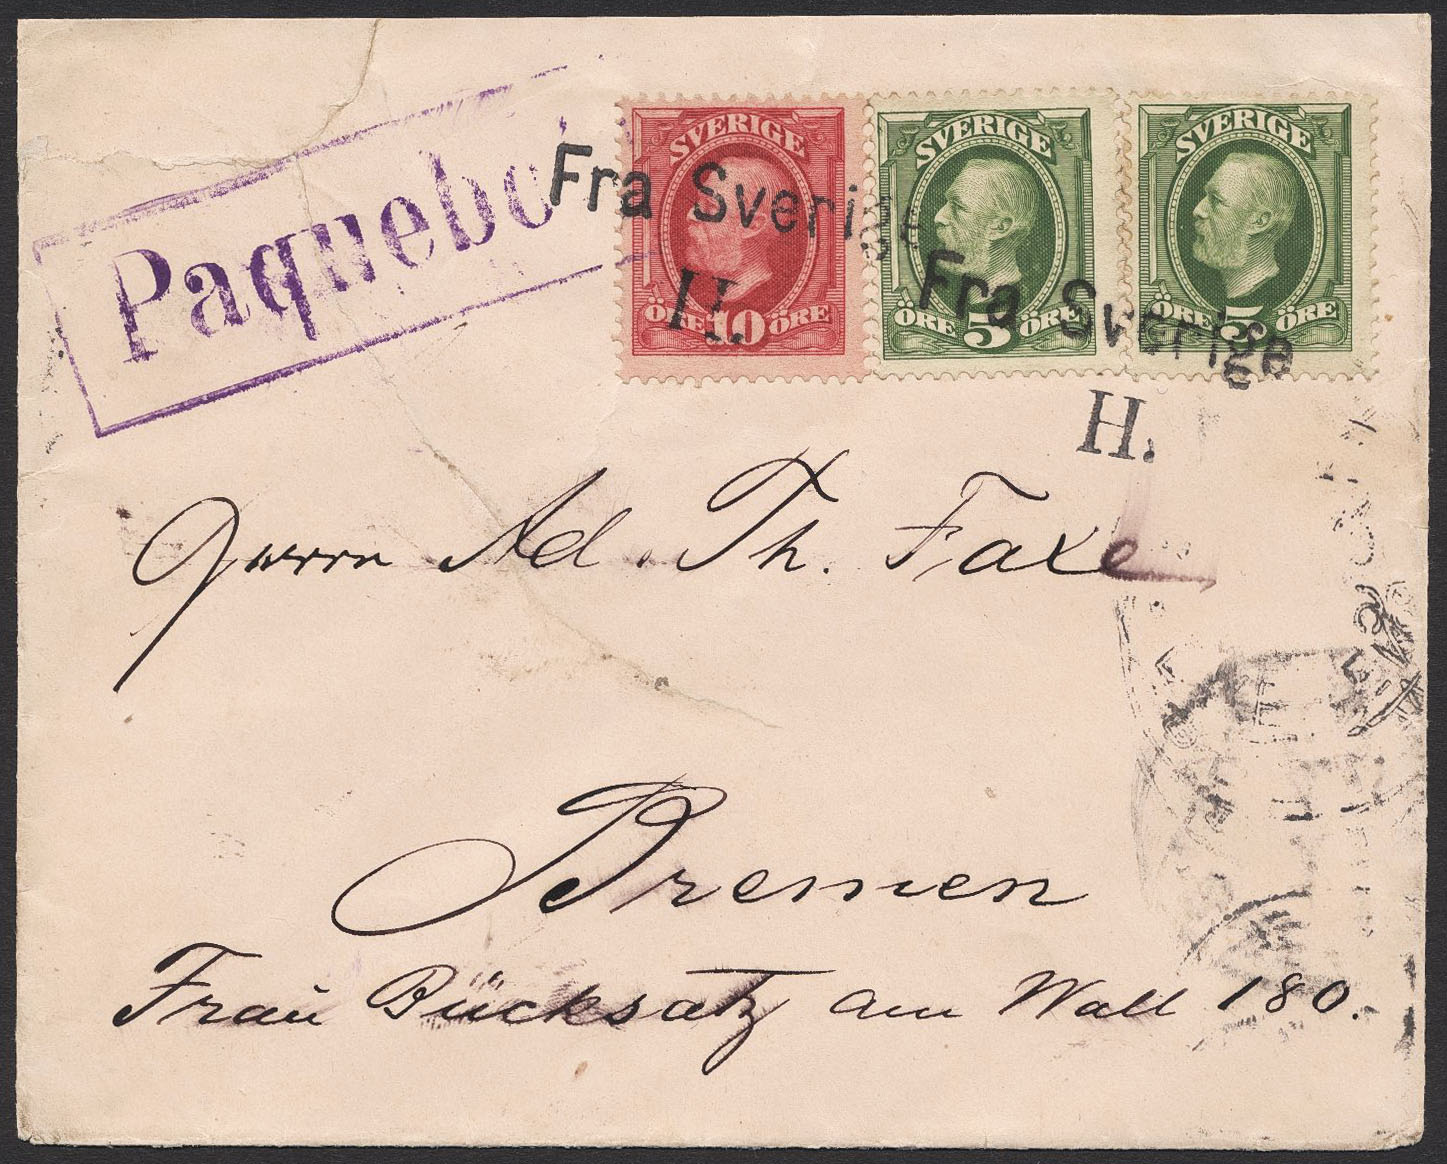 Paquebo
Fra Sverige
H.
SVERIGE
ÖRE 10 ÖRE
SVERIGE
ÖRE 5 ÖRE
SVERIGE
ÖRE 5 ÖRE
Fra Sverige
H.
Herrn Ad. Th. Faxe
Bremen
Frau Bücksatz am Wall 180.